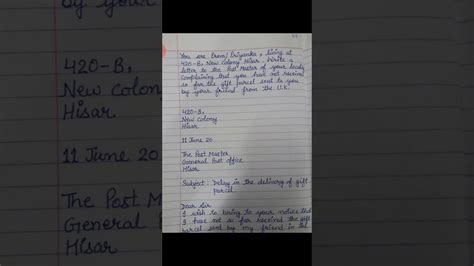 You are Prem/Priyanka, living at
420-B, New Colony Hisar. Write a
letter to the Post Master of your locality
complaining that you have not received
so far the gift parcel sent to you
by your friend from the U.K.
420-B,
New Colony
Hisar
11 June 20
The Post Master
General Post office
Hisar
Subject: Delay in the delivery of gift
parcel
Dear Sir
I wish to bring to your notice that
I have not so far received the gift
parcel sent by my friend in the
420-B,
New Colony
Hisar
11 June 20
The Post M
General
Hisar